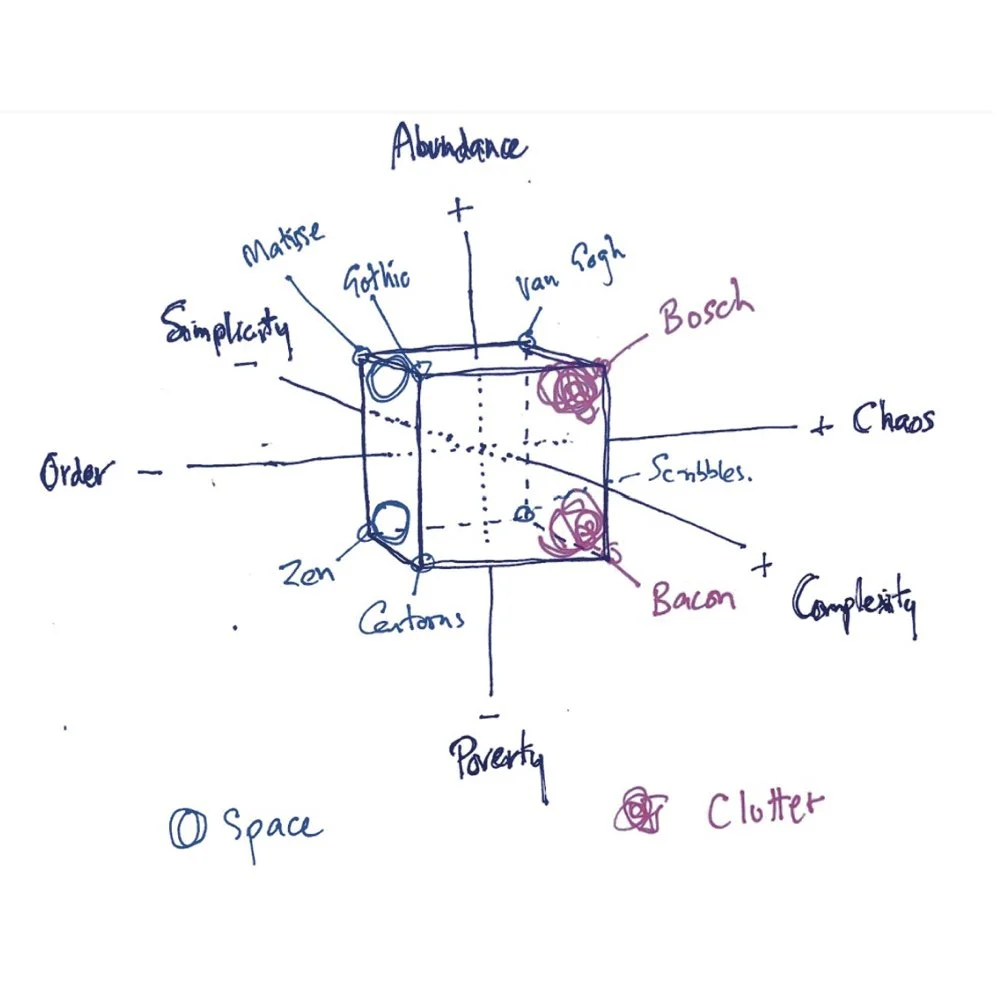 Abundance
+
Matisse
Gothic
van Gogh
Bosch
Simplicity
−
+ Chaos
Order −
Scribbles.
+
Complexity
Zen
Cartoons
Bacon
−
Poverty
Space
Clutter